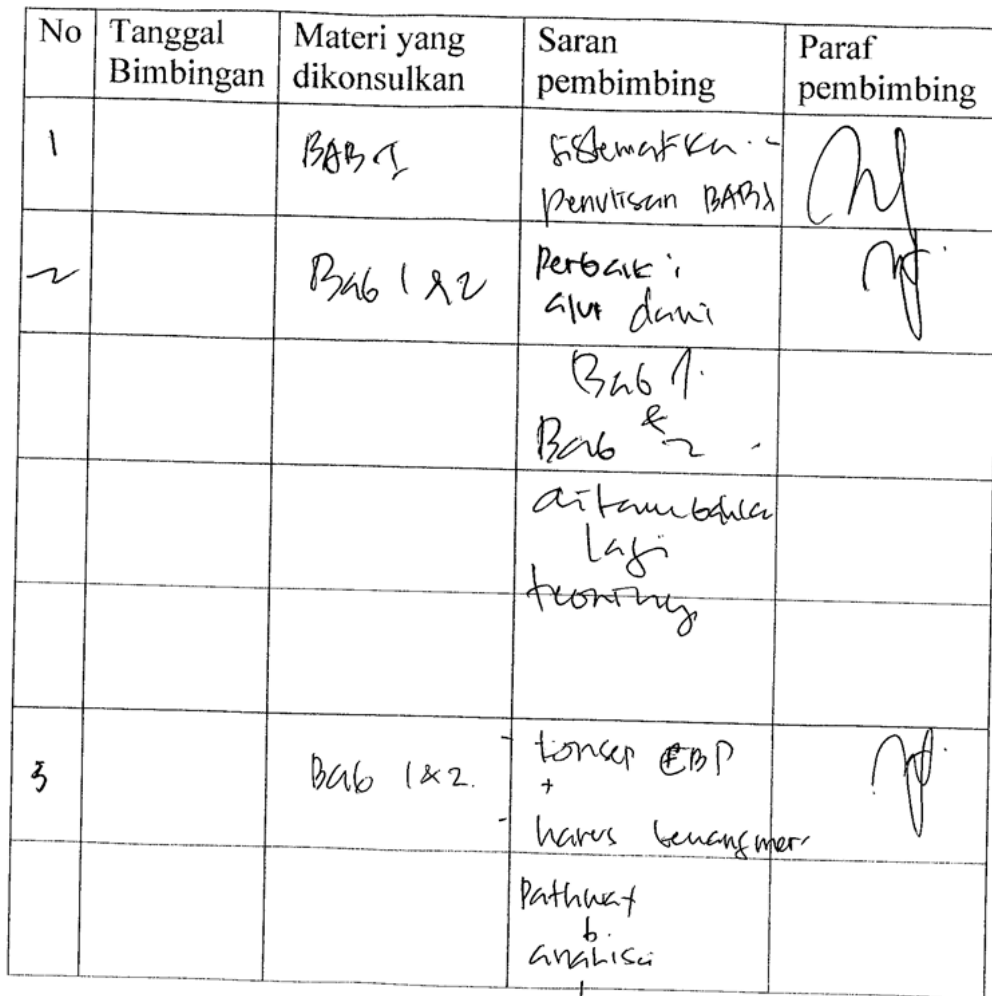 No Tanggal Bimbingan Materi yang dikonsulkan Saran pembimbing Paraf pembimbing
1 BAB I sistematika
penulisan BAB 1
2 Bab 1 & 2 Perbaiki
alur dari
Bab 1
&
Bab 2
ditambahka
lagi
teorinya
3 Bab 1 & 2. - konsep EBP
+
- harus
Pathway
analisa